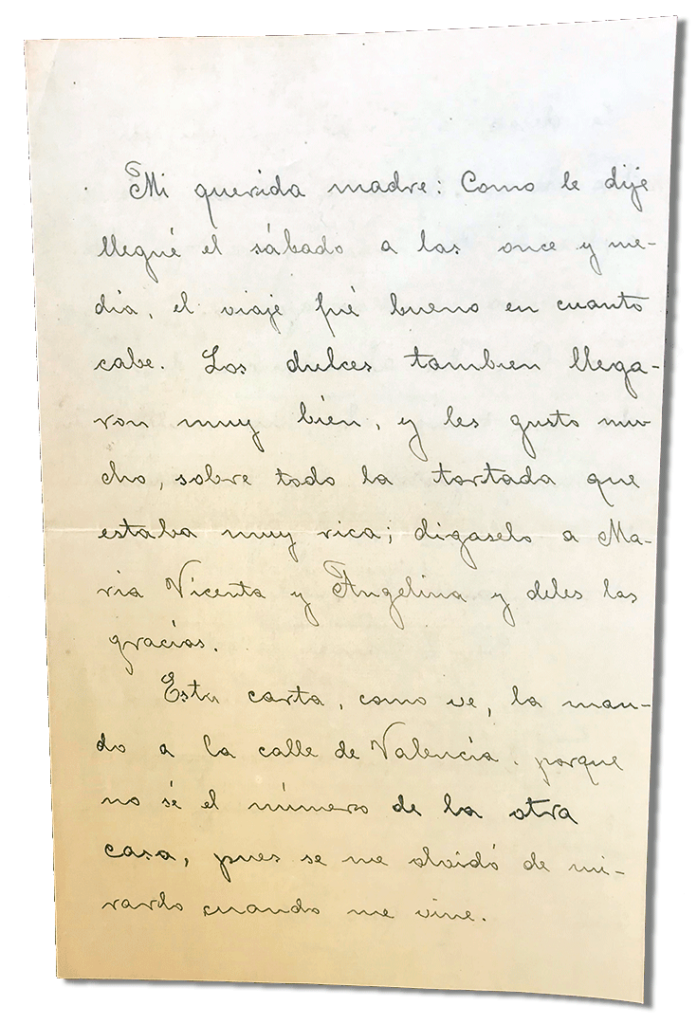 Mi querida madre: Como le dije
llegué el sábado a las once y me-
dia, el viaje fué bueno en cuanto
cabe. Los dulces tambien llega-
ron muy bien, y les gusto mu-
cho, sobre todo la tortada que
estaba muy rica; digaselo a Ma-
ria Vicenta y Angelina y deles las
gracias.
Esta carta, como ve, la man-
do a la calle de Valencia. porque
no sé el número de la otra
casa, pues se me olvidó de mi-
rarlo cuando me vine.